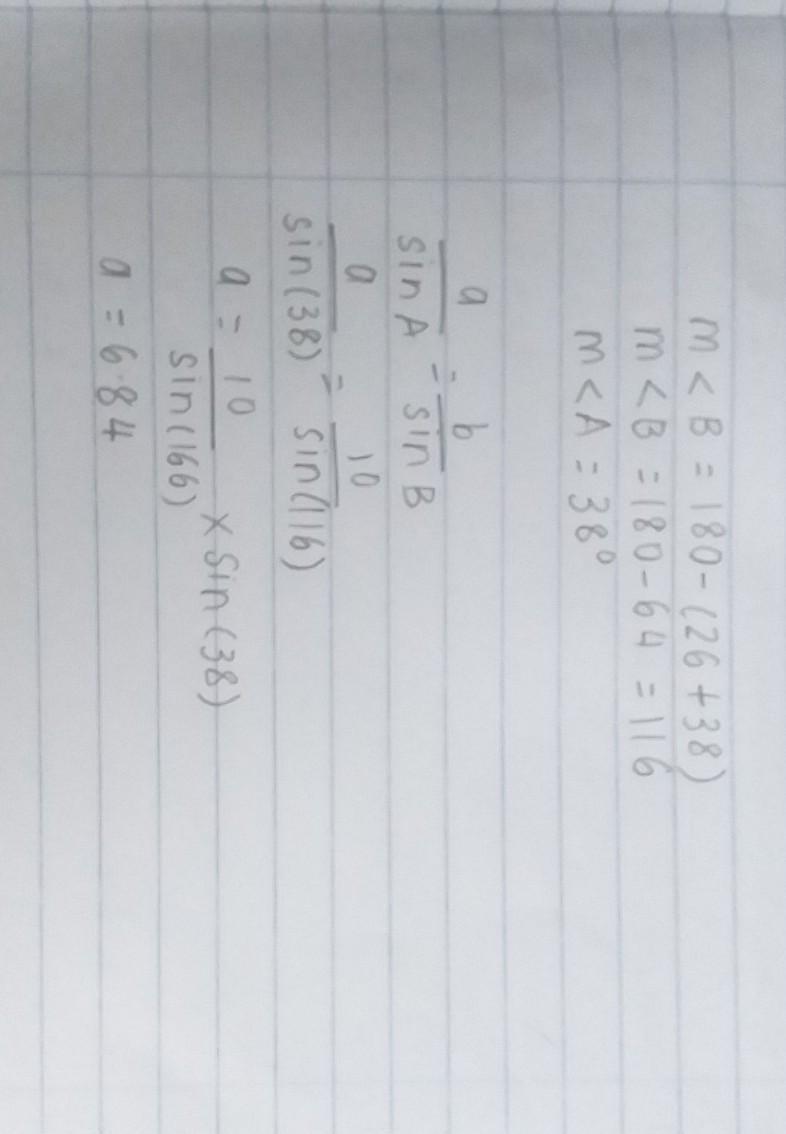 m < B = 180 - (26 + 38)
m < B = 180 - 64 = 116
m < A = 38°
a/sin A = b/sin B
a/sin(38) = 10/sin(116)
a = 10/sin(166) × sin(38)
a = 6.84